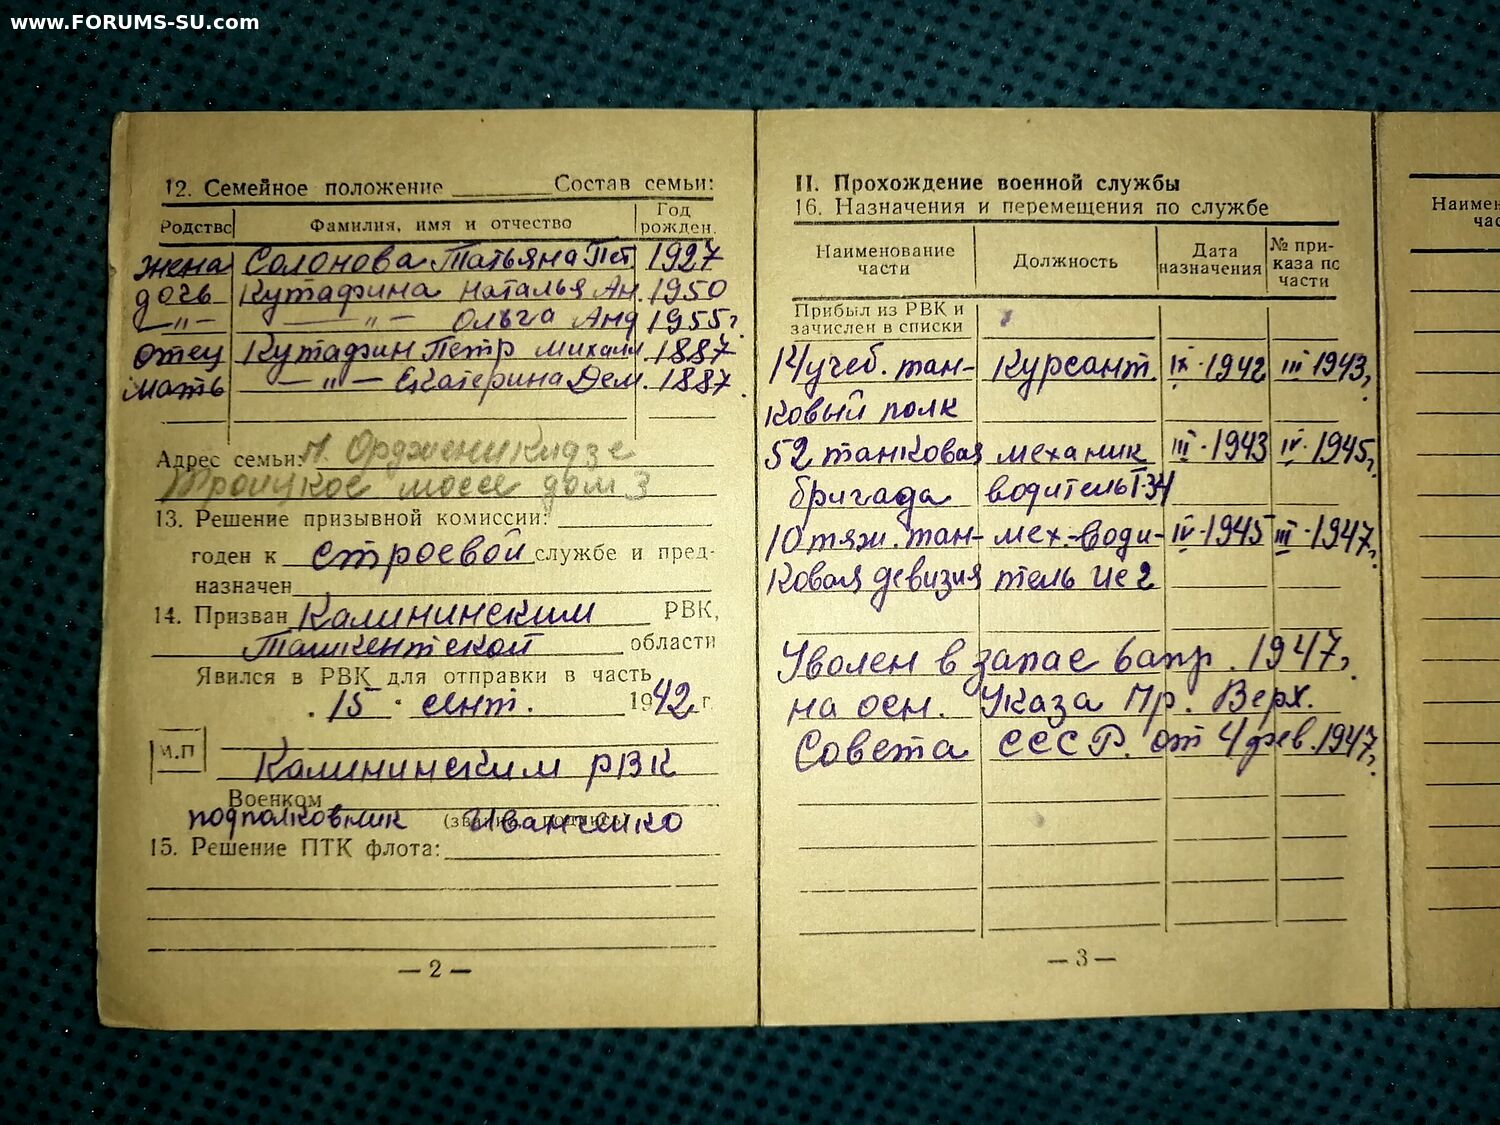 www.FORUMS-SU.com
12. Семейное положение ________ Состав семьи:
Родство Фамилия, имя и отчество Год рожден.
жена Солонова Татьяна Пет. 1927
дочь Кутафина Наталья Ан. 1950
—"— —"— Ольга Анд 1955г
отец Кутафин Петр Михаил. 1887
мать —"— Екатерина Дем. 1887.
Адрес семьи: п. Орджоникидзе
Троицкое шоссе дом 3
13. Решение призывной комиссии:
годен к строевой службе и пред-
назначен
14. Призван Калининским РВК,
Ташкентской области
Явился в РВК для отправки в часть
. 15 . сент. 1942 г.
М.П
Калининским РВК
Военком
подполковник Иванченко
15. Решение ПТК флота:
— 2 —
II. Прохождение военной службы
16. Назначения и перемещения по службе
Наименование части Должность Дата назначения № при-каза по части
Прибыл из РВК и
зачислен в списки
14 учеб. тан- Курсант. IX·1942 III·1943г
ковый полк
52 танковая механик III·1943 IV·1945г
бригада водитель Т-34
10 тяж. тан- мех.-води- IV·1945 III·1947г
ковая девизия тель ис 2
Уволен в запас 6 апр. 1947г
на осн. Указа Пр. Верх.
Совета СССР. от 4 фев. 1947г
— 3 —
Наимен
час